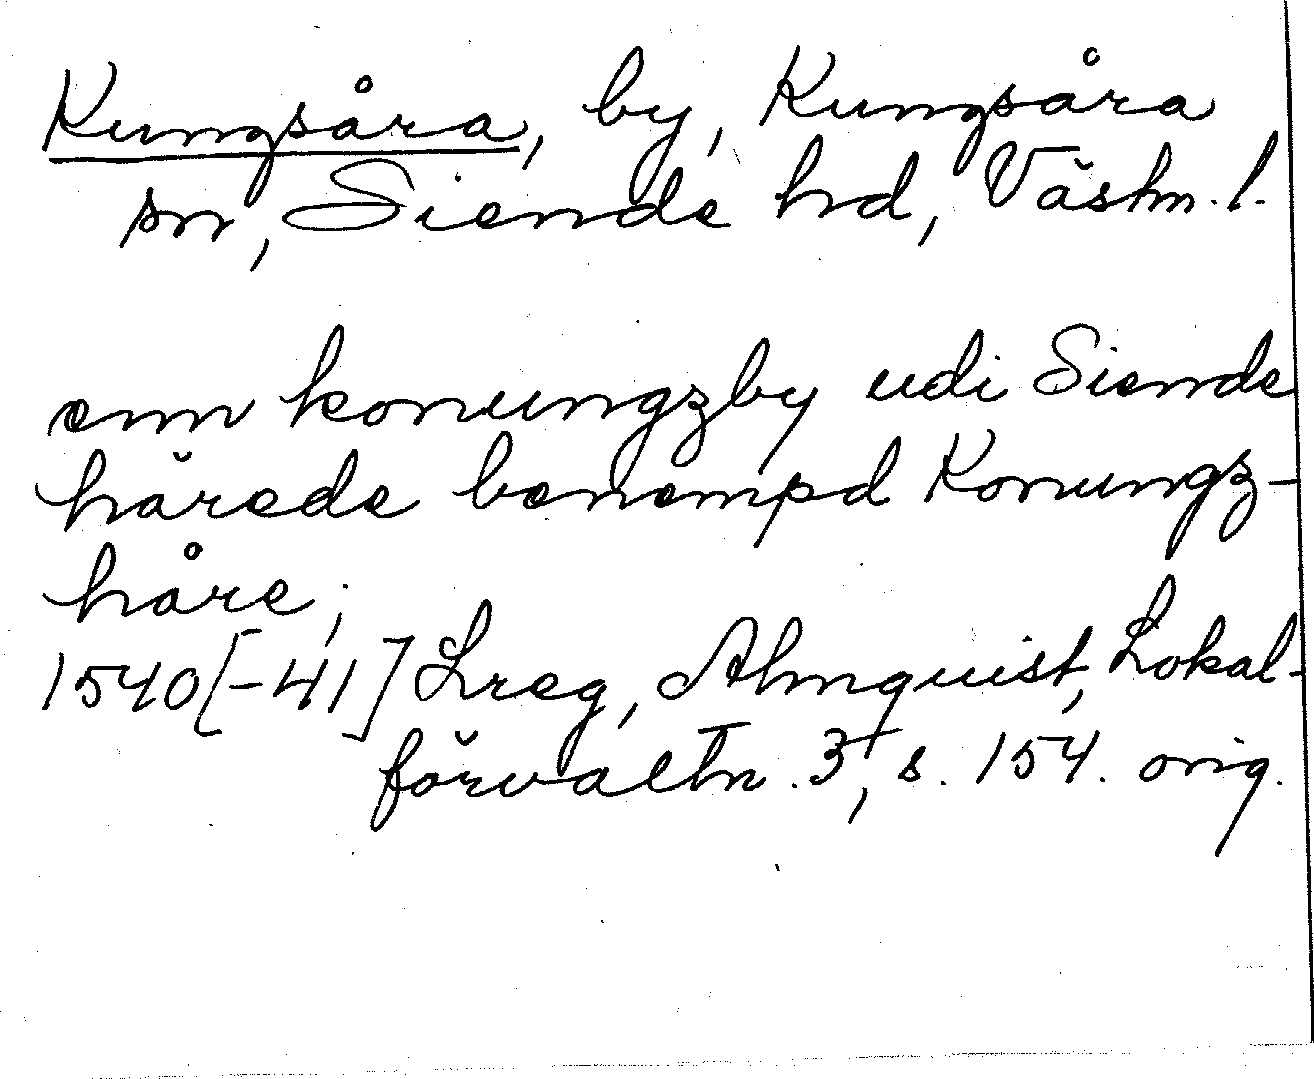 Kungsåra, by, Kungsåra
sn, Siende hd, Västm. l.
enn konungzby udi Siende
härede benempd Konungz-
håre;
1540[-41] Lreg, Almquist, Lokal-
förvaltn. 3, s. 154. orig.